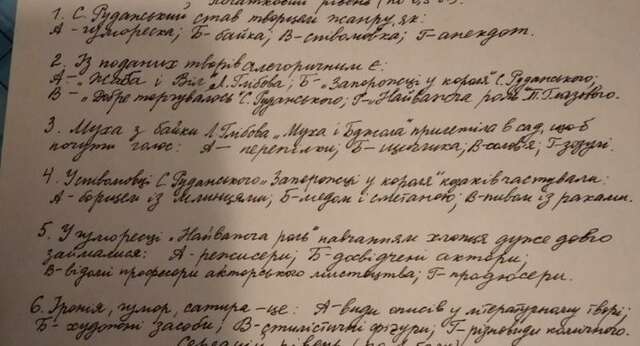 Початковий рівень (по 0,5 б).
1. С. Руданський став творцем жанру, як:
А - гумореска; Б - байка; В - співомовка; Г - анекдот.
2. Із поданих творів алегоричним є:
А - „Жаба і Віл" Л. Глібова; Б - „Запорожці у короля" С. Руданського;
В - „Добре торгувалось" С. Руданського; Г - „Найважча роль" П. Глазового.
3. Муха з байки Л. Глібова „Муха і Бджола" прилетіла в сад, щоб
почути голос: А - перепілки; Б - щиглика; В - солов'я; Г - зозулі.
4. У співомовці С. Руданського „Запорожці у короля" козаків частували:
А - борщем із млинцями; Б - медом і сметаною; В - пивом із раками.
5. У гуморесці „Найважча роль" навчанням хлопця дуже довго
займалися: А - режисери; Б - досвідчені актори;
В - відомі професори акторського мистецтва; Г - продюсери.
6. Іронія, гумор, сатира - це: А - види описів у літературному творі;
Б - художні засоби; В - стилістичні фігури; Г - різновиди комічного.
Середній рівень